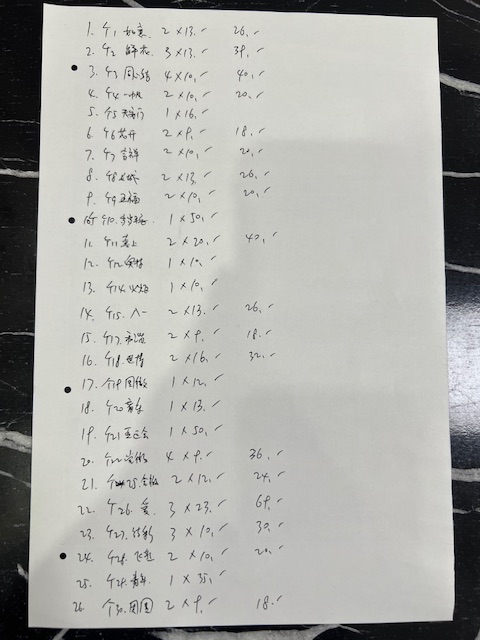 1. 个1 如意 2 × 13.✓ 26.✓
2. 个2 鲜花 3 × 13.✓ 39.✓
3. 个3 同心结 4 × 10.✓ 40.✓
4. 个4 一帆 2 × 10.✓ 20.✓
5. 个5 1 × 16.✓
6. 个6 花开 2 × 9.✓ 18.✓
7. 个7 吉祥 2 × 10.✓ 20.✓
8. 个8 2 × 13.✓ 26.✓
9. 个9 五福 2 × 10.✓ 20.✓
10. 个10. 1 × 50.✓
11. 个11 喜上 2 × 20.✓ 40.✓
12. 个12 1 × 10.✓
13. 个14 火炬 1 × 10.✓
14. 个15. 八一 2 × 13.✓ 26.✓
15. 个17. 2 × 9.✓ 18.✓
16. 个18. 2 × 16.✓ 32.✓
17. 个19 国徽 1 × 12.✓
18. 个20 音乐 1 × 13.✓
19. 个21 亚运会 1 × 50.✓
20. 个22 4 × 9.✓ 36.✓
21. 个25. 2 × 12.✓ 24.✓
22. 个26. 爱 3 × 23.✓ 69.✓
23. 个27. 3 × 10.✓ 30.✓
24. 个28. 2 × 10.✓ 20.✓
25. 个29. 青年 1 × 35.✓
26. 个30. 团圆 2 × 9.✓ 18.✓